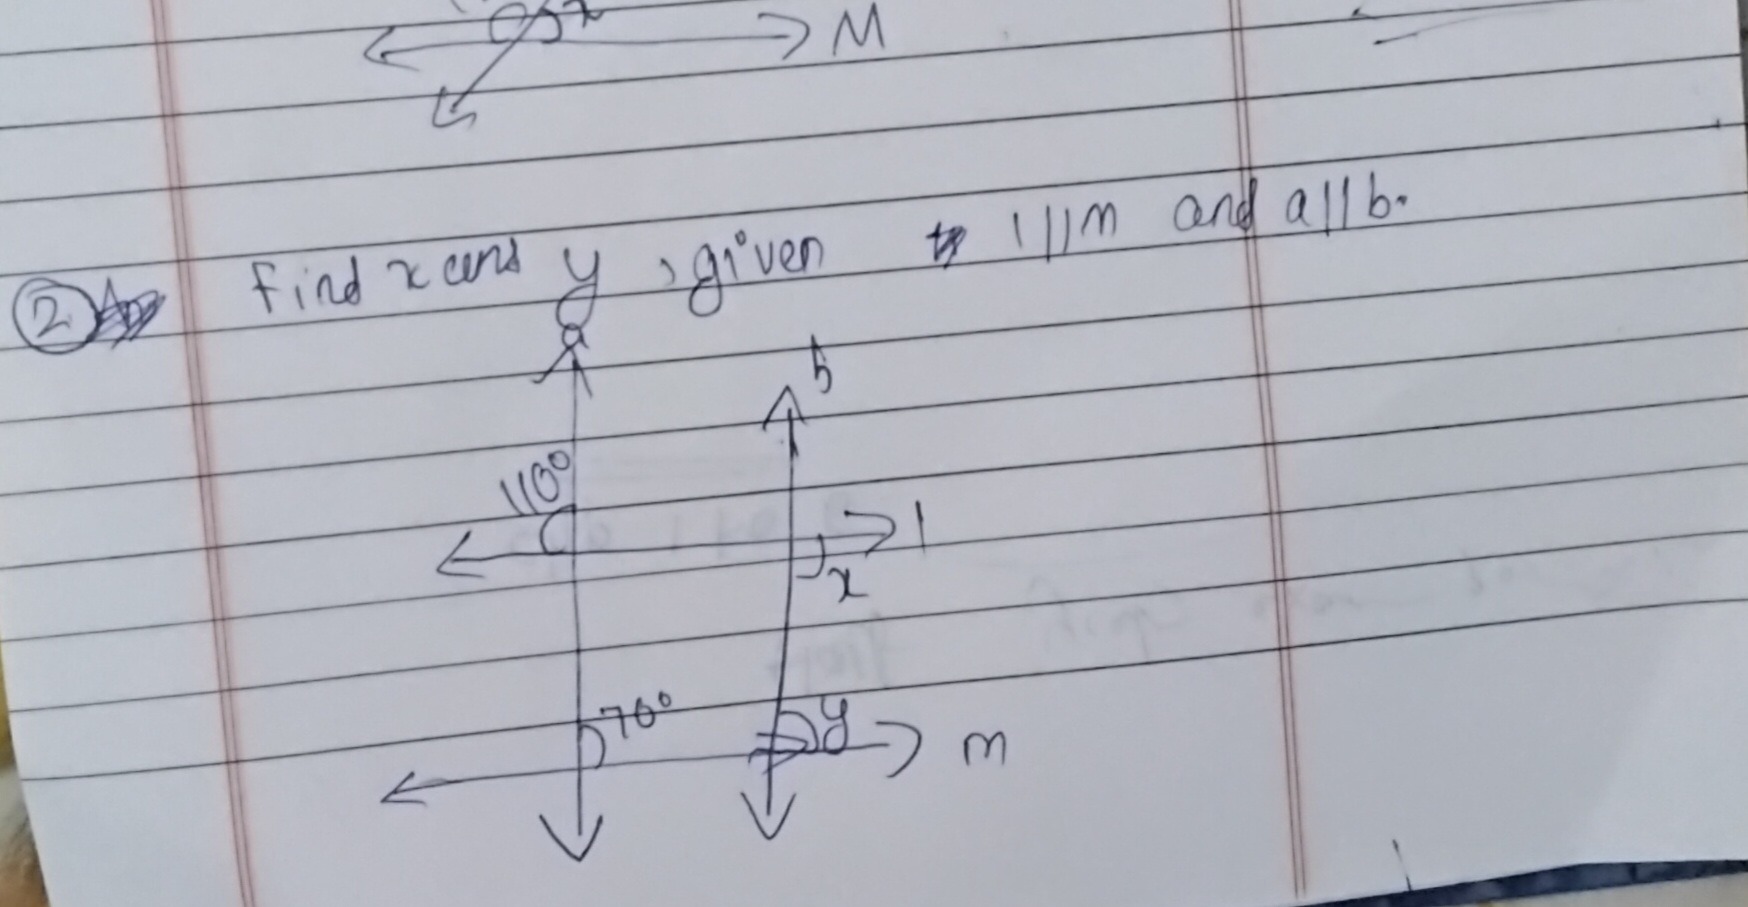 x
M
② Find x and y, given l || m and a || b.
a
b
110°
l
x
70° y
m